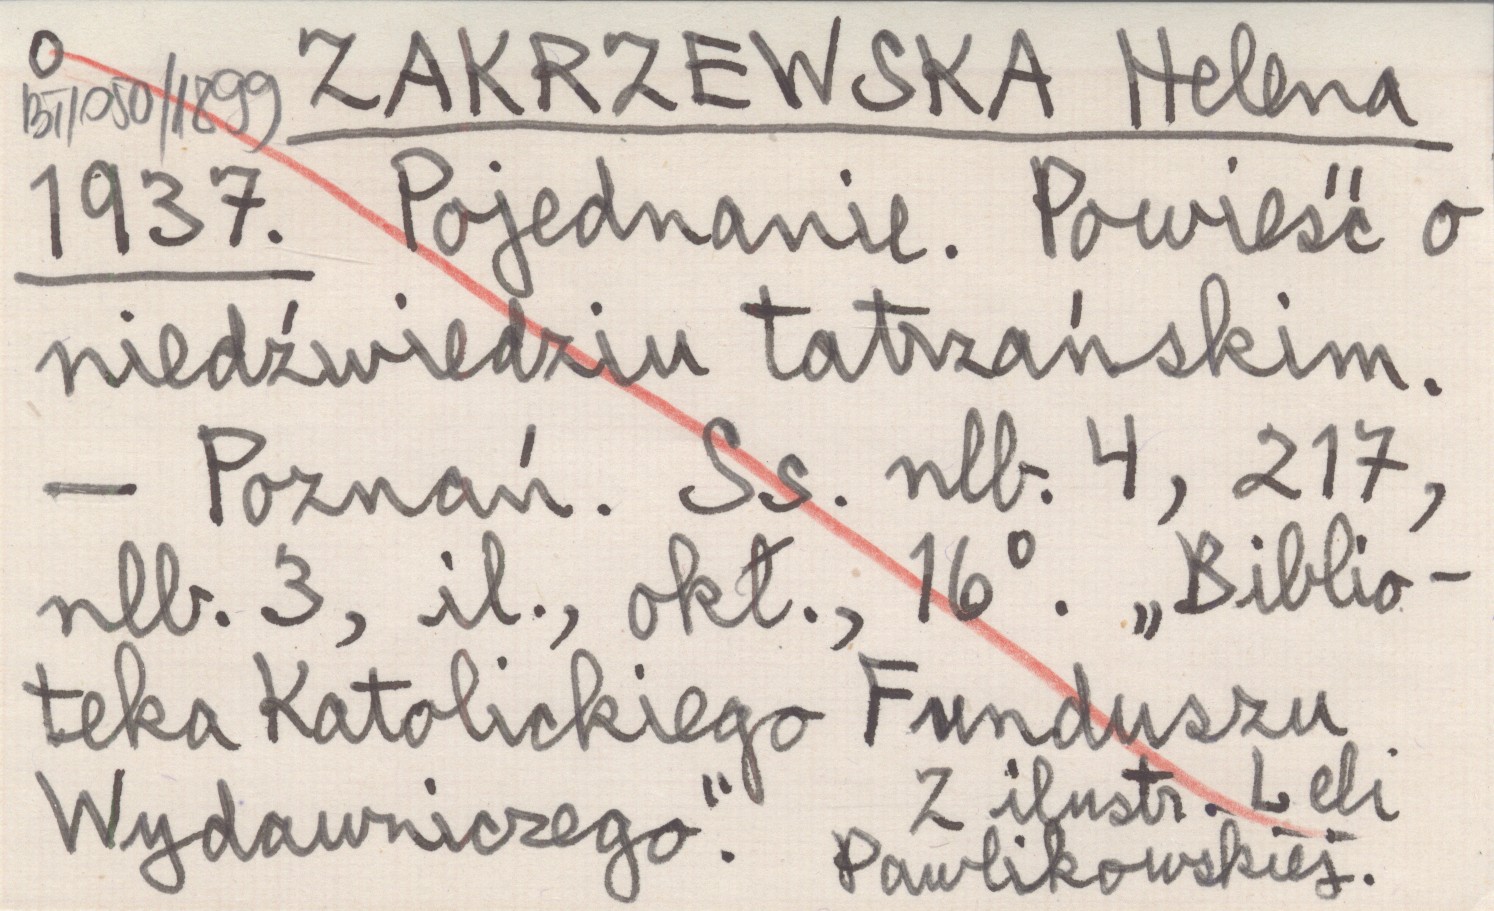 O ZAKRZEWSKA Helena
BT/1050/1899
1937. Pojednanie. Powieść o
niedźwiedziu tatrzańskim.
— Poznań. Ss. nlb. 4, 217,
nlb. 3, il., okł., 16°. „Biblio-
teka Katolickiego Funduszu
Wydawniczego".
Z ilustr. Leli
Pawlikowskiej.